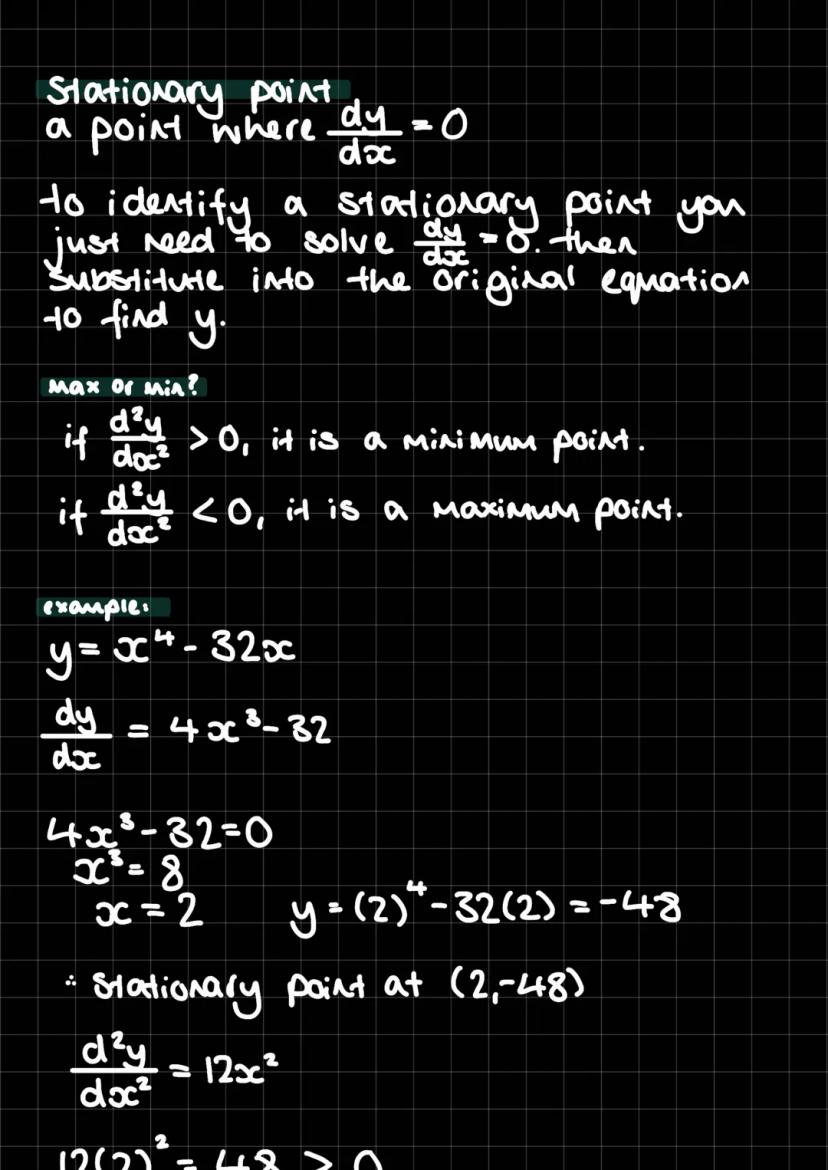 Stationary point
a point where dy/dx = 0
to identify a stationary point you
just need to solve dy/dx = 0. then
substitute into the original equation
to find y.
max or min?
if d²y/dx² > 0, it is a minimum point.
if d²y/dx² < 0, it is a maximum point.
example:
y = x⁴ - 32x
dy/dx = 4x³ - 32
4x³ - 32 = 0
x³ = 8
x = 2 y = (2)⁴ - 32(2) = -48
∴ stationary point at (2,-48)
d²y/dx² = 12x²
12(2)² = 48 > 0